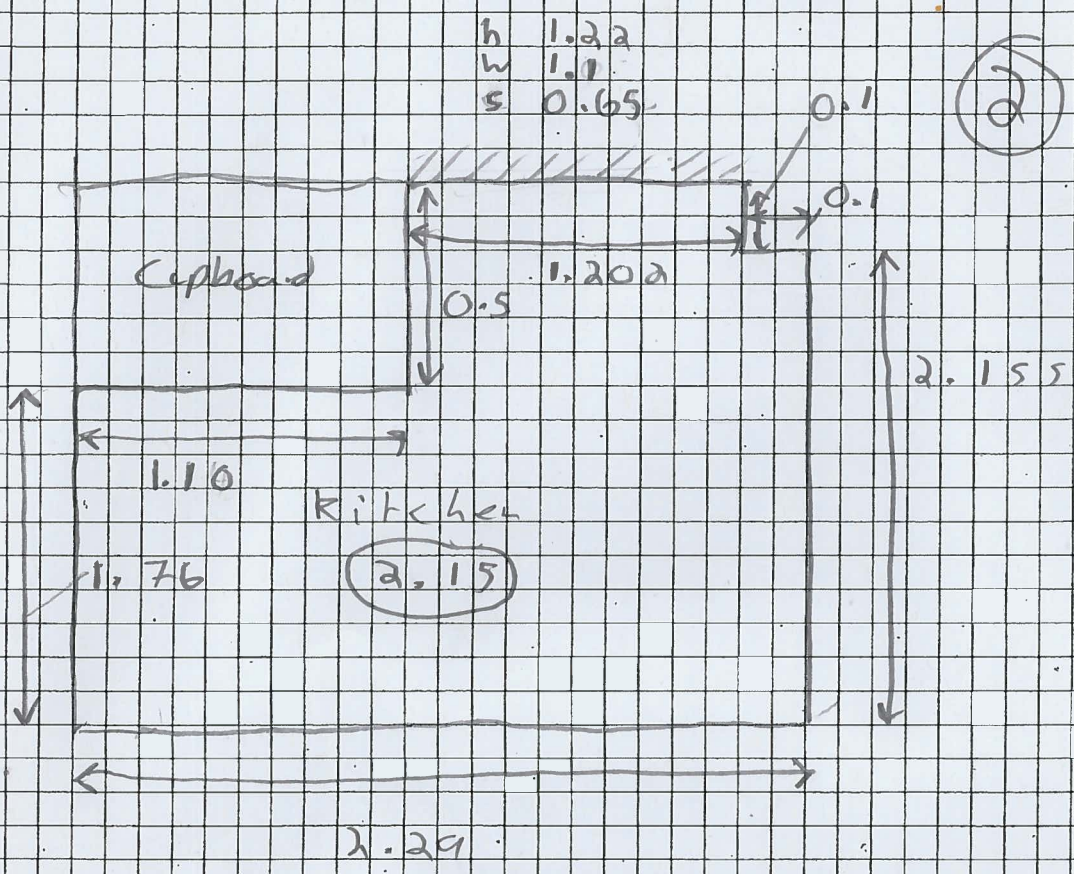 h 1.22
w 1.1
s 0.65
2
0.1
0.1
1.202
Cupboard
0.5
2.155
1.10
Kitchen
1.76
2.15
2.29